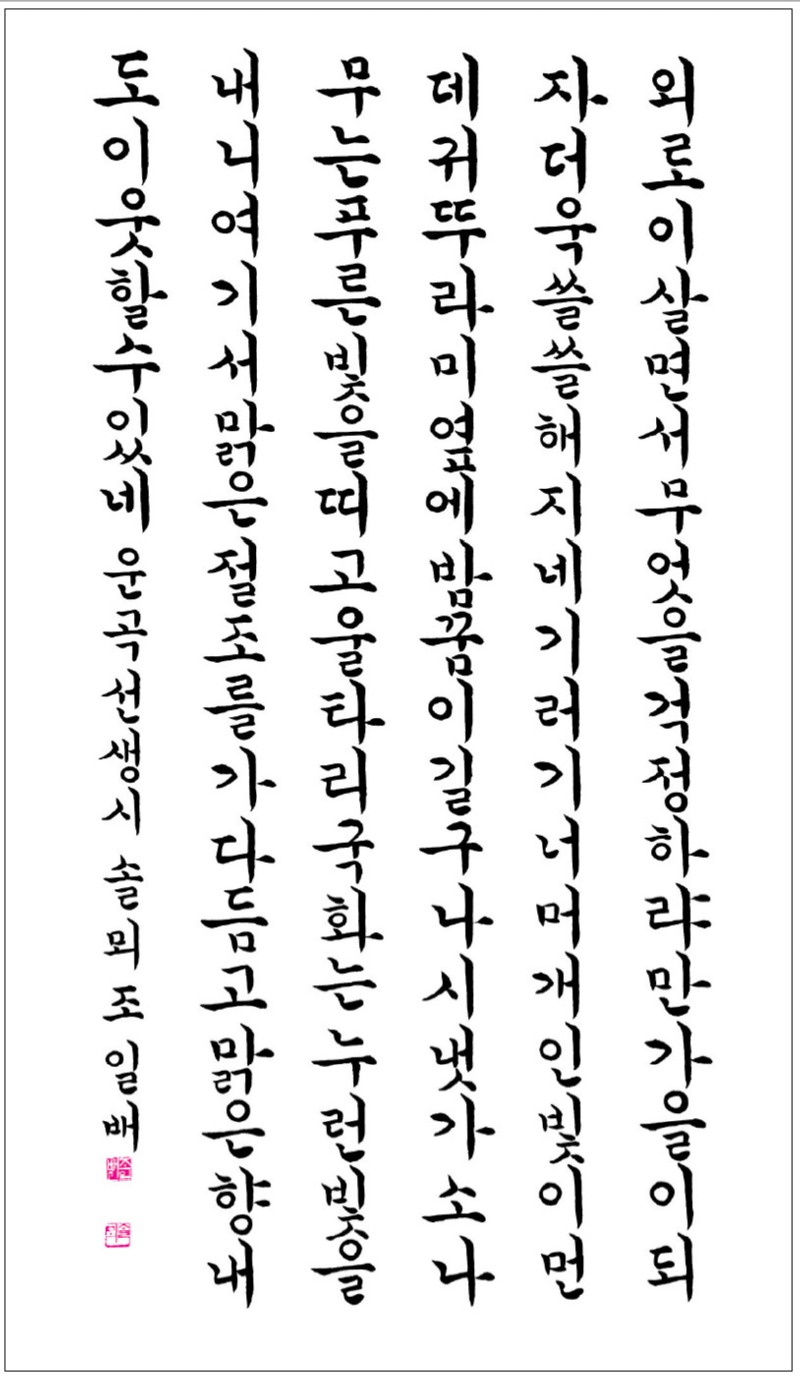 외로이살면서무엇을걱정하랴만가을이되
자더욱쓸쓸해지네기러기너머개인빛이먼
데귀뚜라미옆에밤꿈이길구나시냇가소나
무는푸른빛을띠고울타리국화는누런빛을
내니여기서맑은절조를가다듬고맑은향내
도이웃할수있네 운곡선생시 솔뫼 조일배